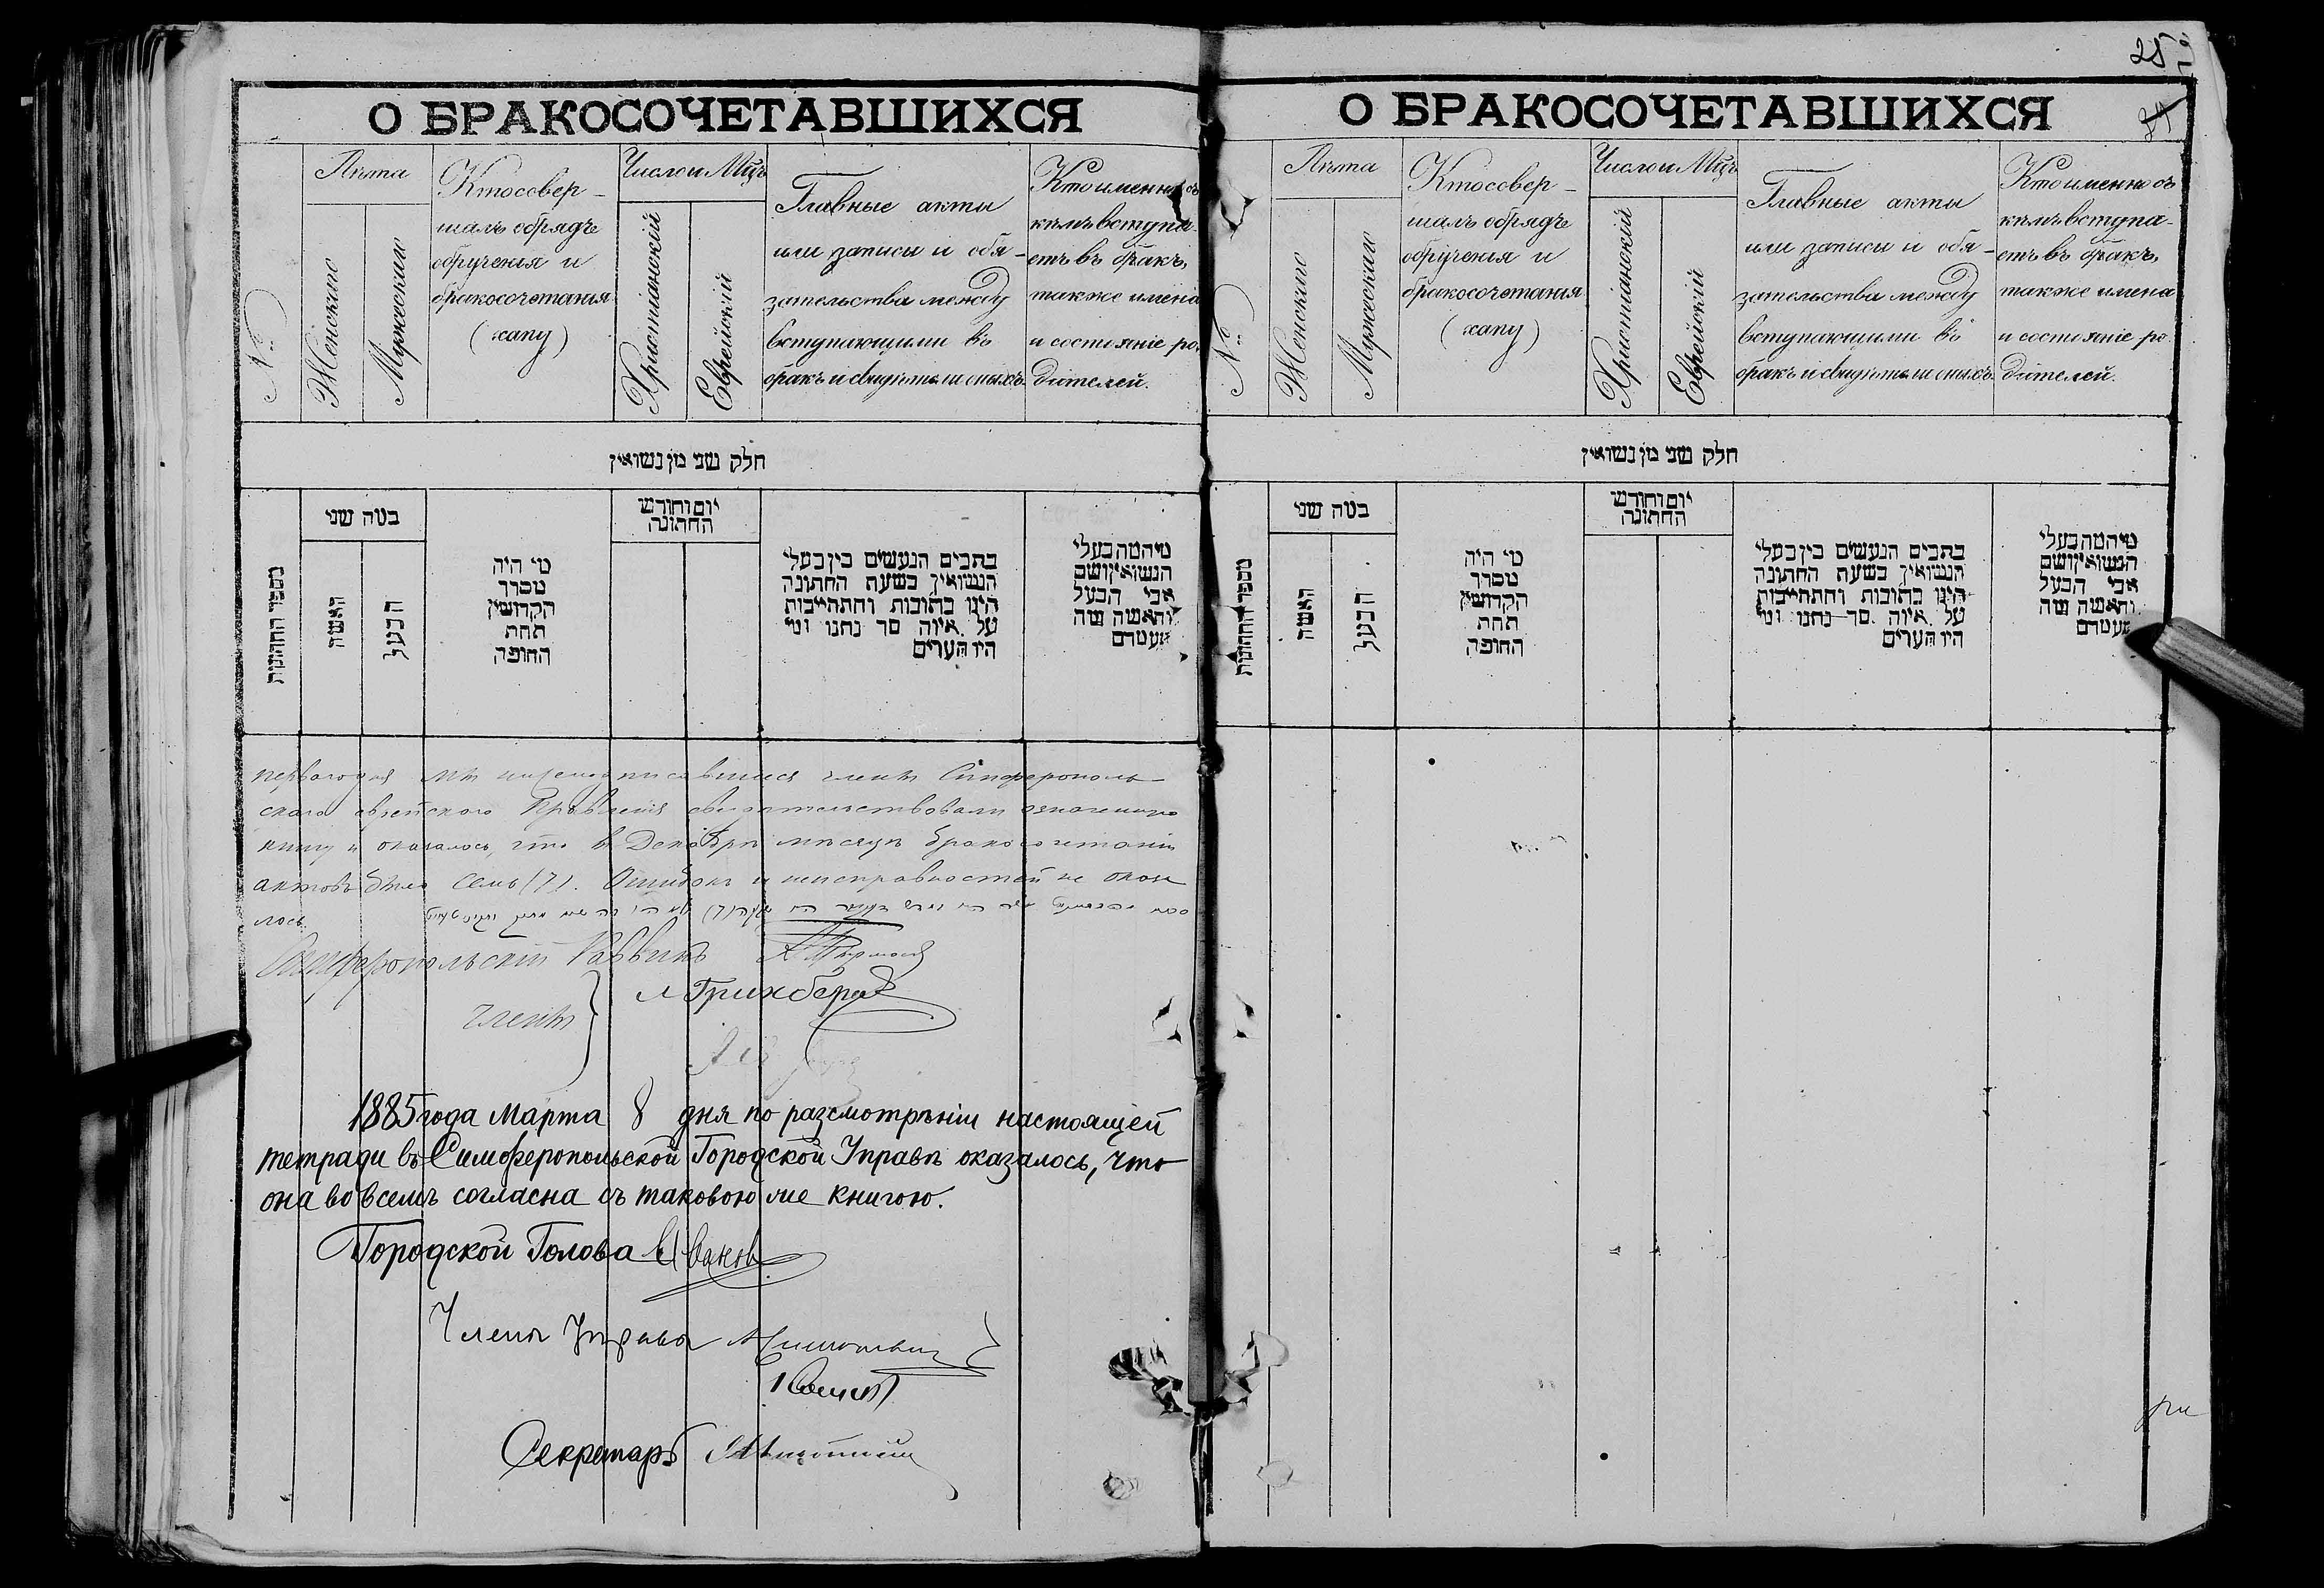 О БРАКОСОЧЕТАВШИХСЯ
№
Лѣта
Женскаго
Мужескаго
Кто совер-
шалъ обрядъ
обрученія и
бракосочетанія
(хапу)
Число и Мцъ
Христіанскій
Еврейскій
Главные акты
или записи и обя-
зательства между
вступающими въ
бракъ и свидѣтели оныхъ
Кто именно съ
кѣмъ вступа-
етъ въ бракъ,
также имена
и состояніе ро
дителей.
חלק שני מן נשואין
מספר החתונות
כמה שני
האשה
הבעל
מי היה
מסדר
הקדושין
תחת
החופה
יום וחודש
החתונה
כתבים הנעשים בין בעלי
הנשואין בשעת החתונה
היינו כתובות והתחייבות
על איזה סך נתנו ומי
היו העדים
מי המה בעלי
הנשואין ושם
אבי הבעל
והאשה ומה
מעמדם
перваго дня мы нижеподписавшіеся члены Симферополь-
скаго еврейскаго Правленія свидѣтельствовали означенную
книгу и оказалось, что въ Декабрѣ мѣсяцѣ бракосочетаній
актовъ было семь (7). Ошибокъ и неисправностей не оказа
лось.
Симферопольскій Раввинъ
члены
Л Гринберг
1885 года Марта 8 дня по разсмотрѣніи настоящей
тетради въ Симферопольской Городской Управѣ оказалось, что
она во всемъ согласна съ таковою же книгою.
Городской Голова Ивановъ
Члены Управы
Секретарь
25
О БРАКОСОЧЕТАВШИХСЯ
№
Лѣта
Женскаго
Мужескаго
Кто совер-
шалъ обрядъ
обрученія и
бракосочетанія
(хапу)
Число и Мцъ
Христіанскій
Еврейскій
Главные акты
или записи и обя-
зательства между
вступающими въ
бракъ и свидѣтели оныхъ
Кто именно съ
кѣмъ вступа-
етъ въ бракъ,
также имена
и состояніе ро
дителей.
חלק שני מן נשואין
מספר החתונות
כמה שני
האשה
הבעל
מי היה
מסדר
הקדושין
תחת
החופה
יום וחודש
החתונה
כתבים הנעשים בין בעלי
הנשואין בשעת החתונה
היינו כתובות והתחייבות
על איזה סך נתנו ומי
היו העדים
מי המה בעלי
הנשואין ושם
אבי הבעל
והאשה ומה
מעמדם